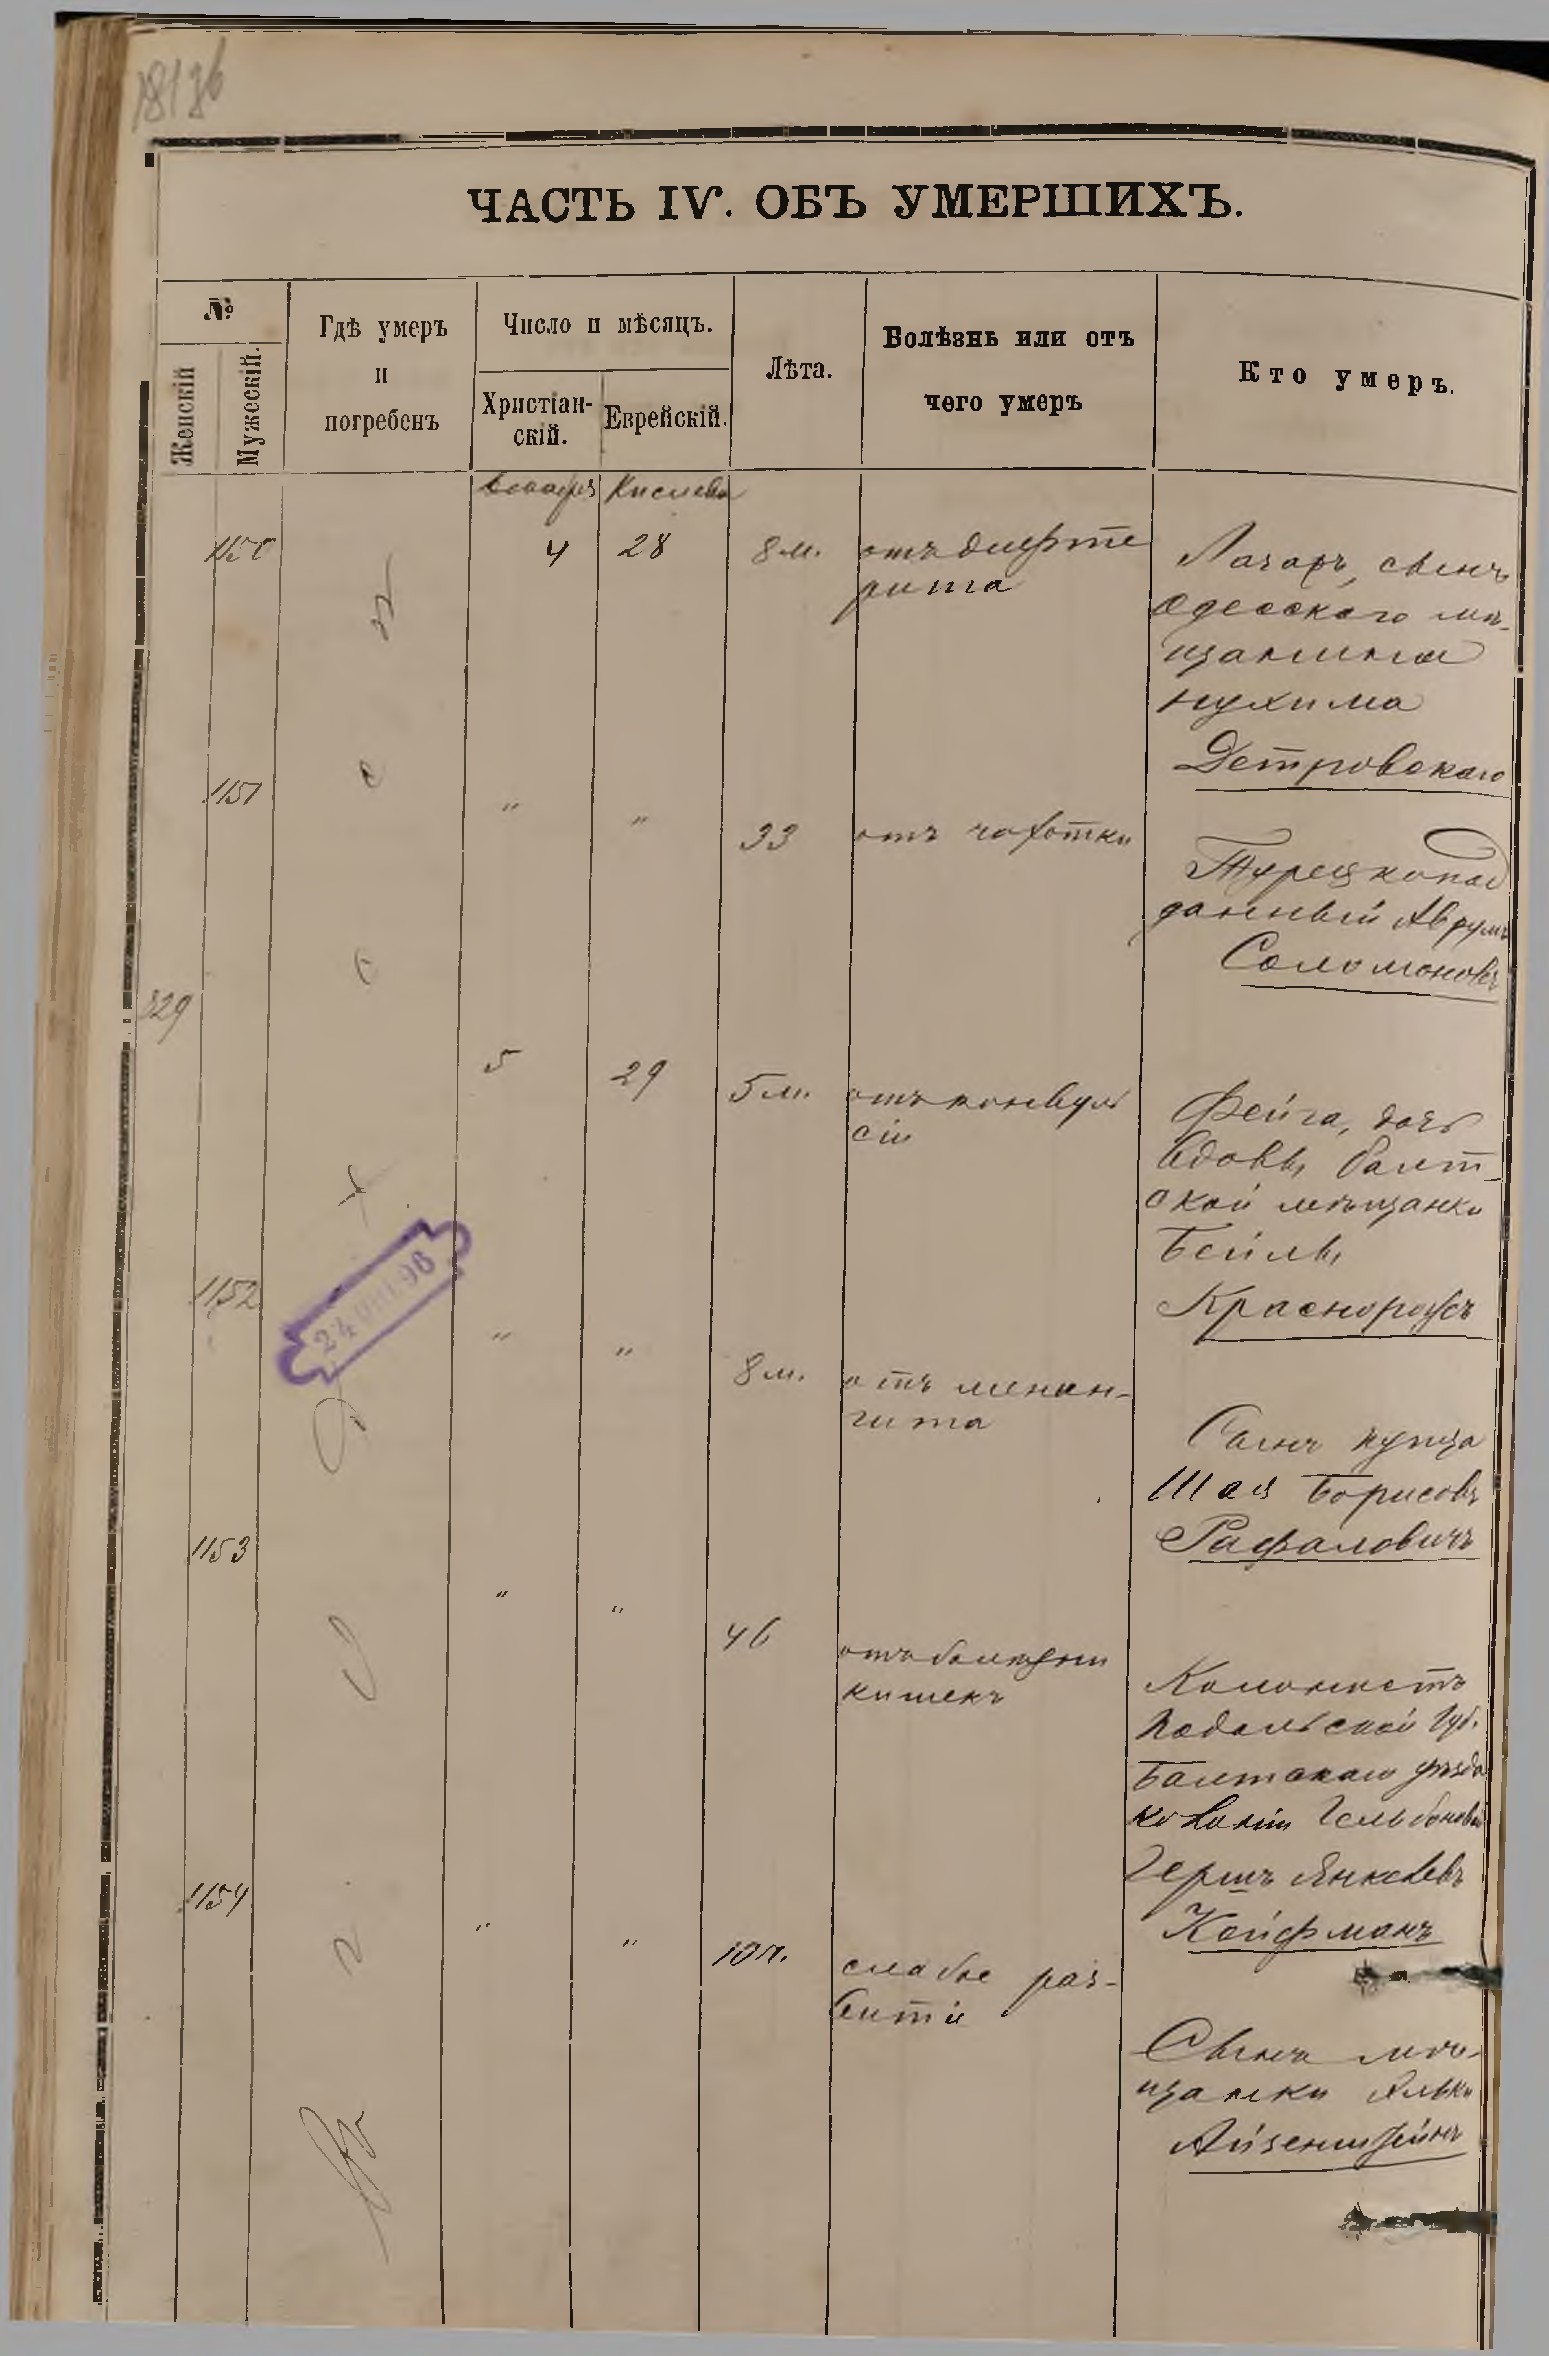 ЧАСТЬ IV. ОБЪ УМЕРШИХЪ.
№
Женскій
Мужескій.
Гдѣ умеръ
и
погребенъ
Число и мѣсяцъ.
Христіан-
скій.
Еврейскій.
Лѣта.
Болѣзнь или отъ
чего умеръ
Кто умеръ.
Кислева
1150
4
28
8 м.
отъ дифте
рита
Лазарь, сынъ
Одесского мѣ-
щанина
Нухима
Петровского
1151
"
"
33
отъ чахотки
Турецкопод
данный Аврумъ
Соломоновъ
829
5
29
5 м.
отъ конвуль
сіи
Фейга, дочь
вдовы балт
ской мѣщанки
Бейлы
1152
"
"
8 м.
отъ менин-
гита
Сынъ купца
Шая Борисовъ
Рафаловичъ
1153
"
"
46
отъ болѣзни
кишекъ
Колонистъ
Подольской губ.
Балтскаго уѣзда
колоніи
Гершъ Янкелевъ
Койфманъ
1154
"
"
10 н.
слабое раз-
витіе
Сынъ мѣ-
щанки
Айзенштейнъ
Въ г. Одессѣ